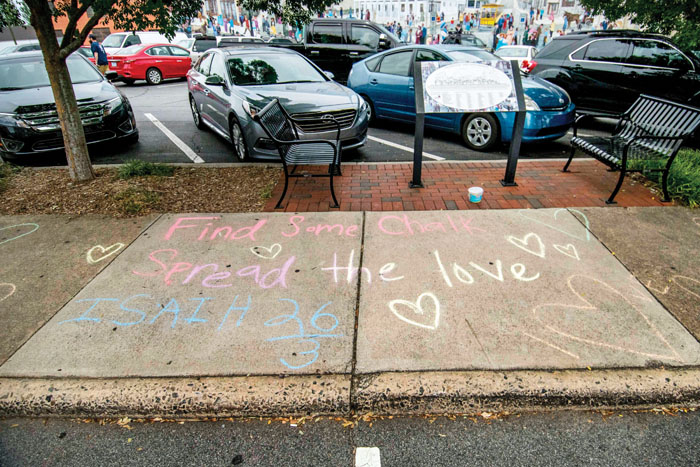 Find Some Chalk
Spread the love
ISAIH 26
3